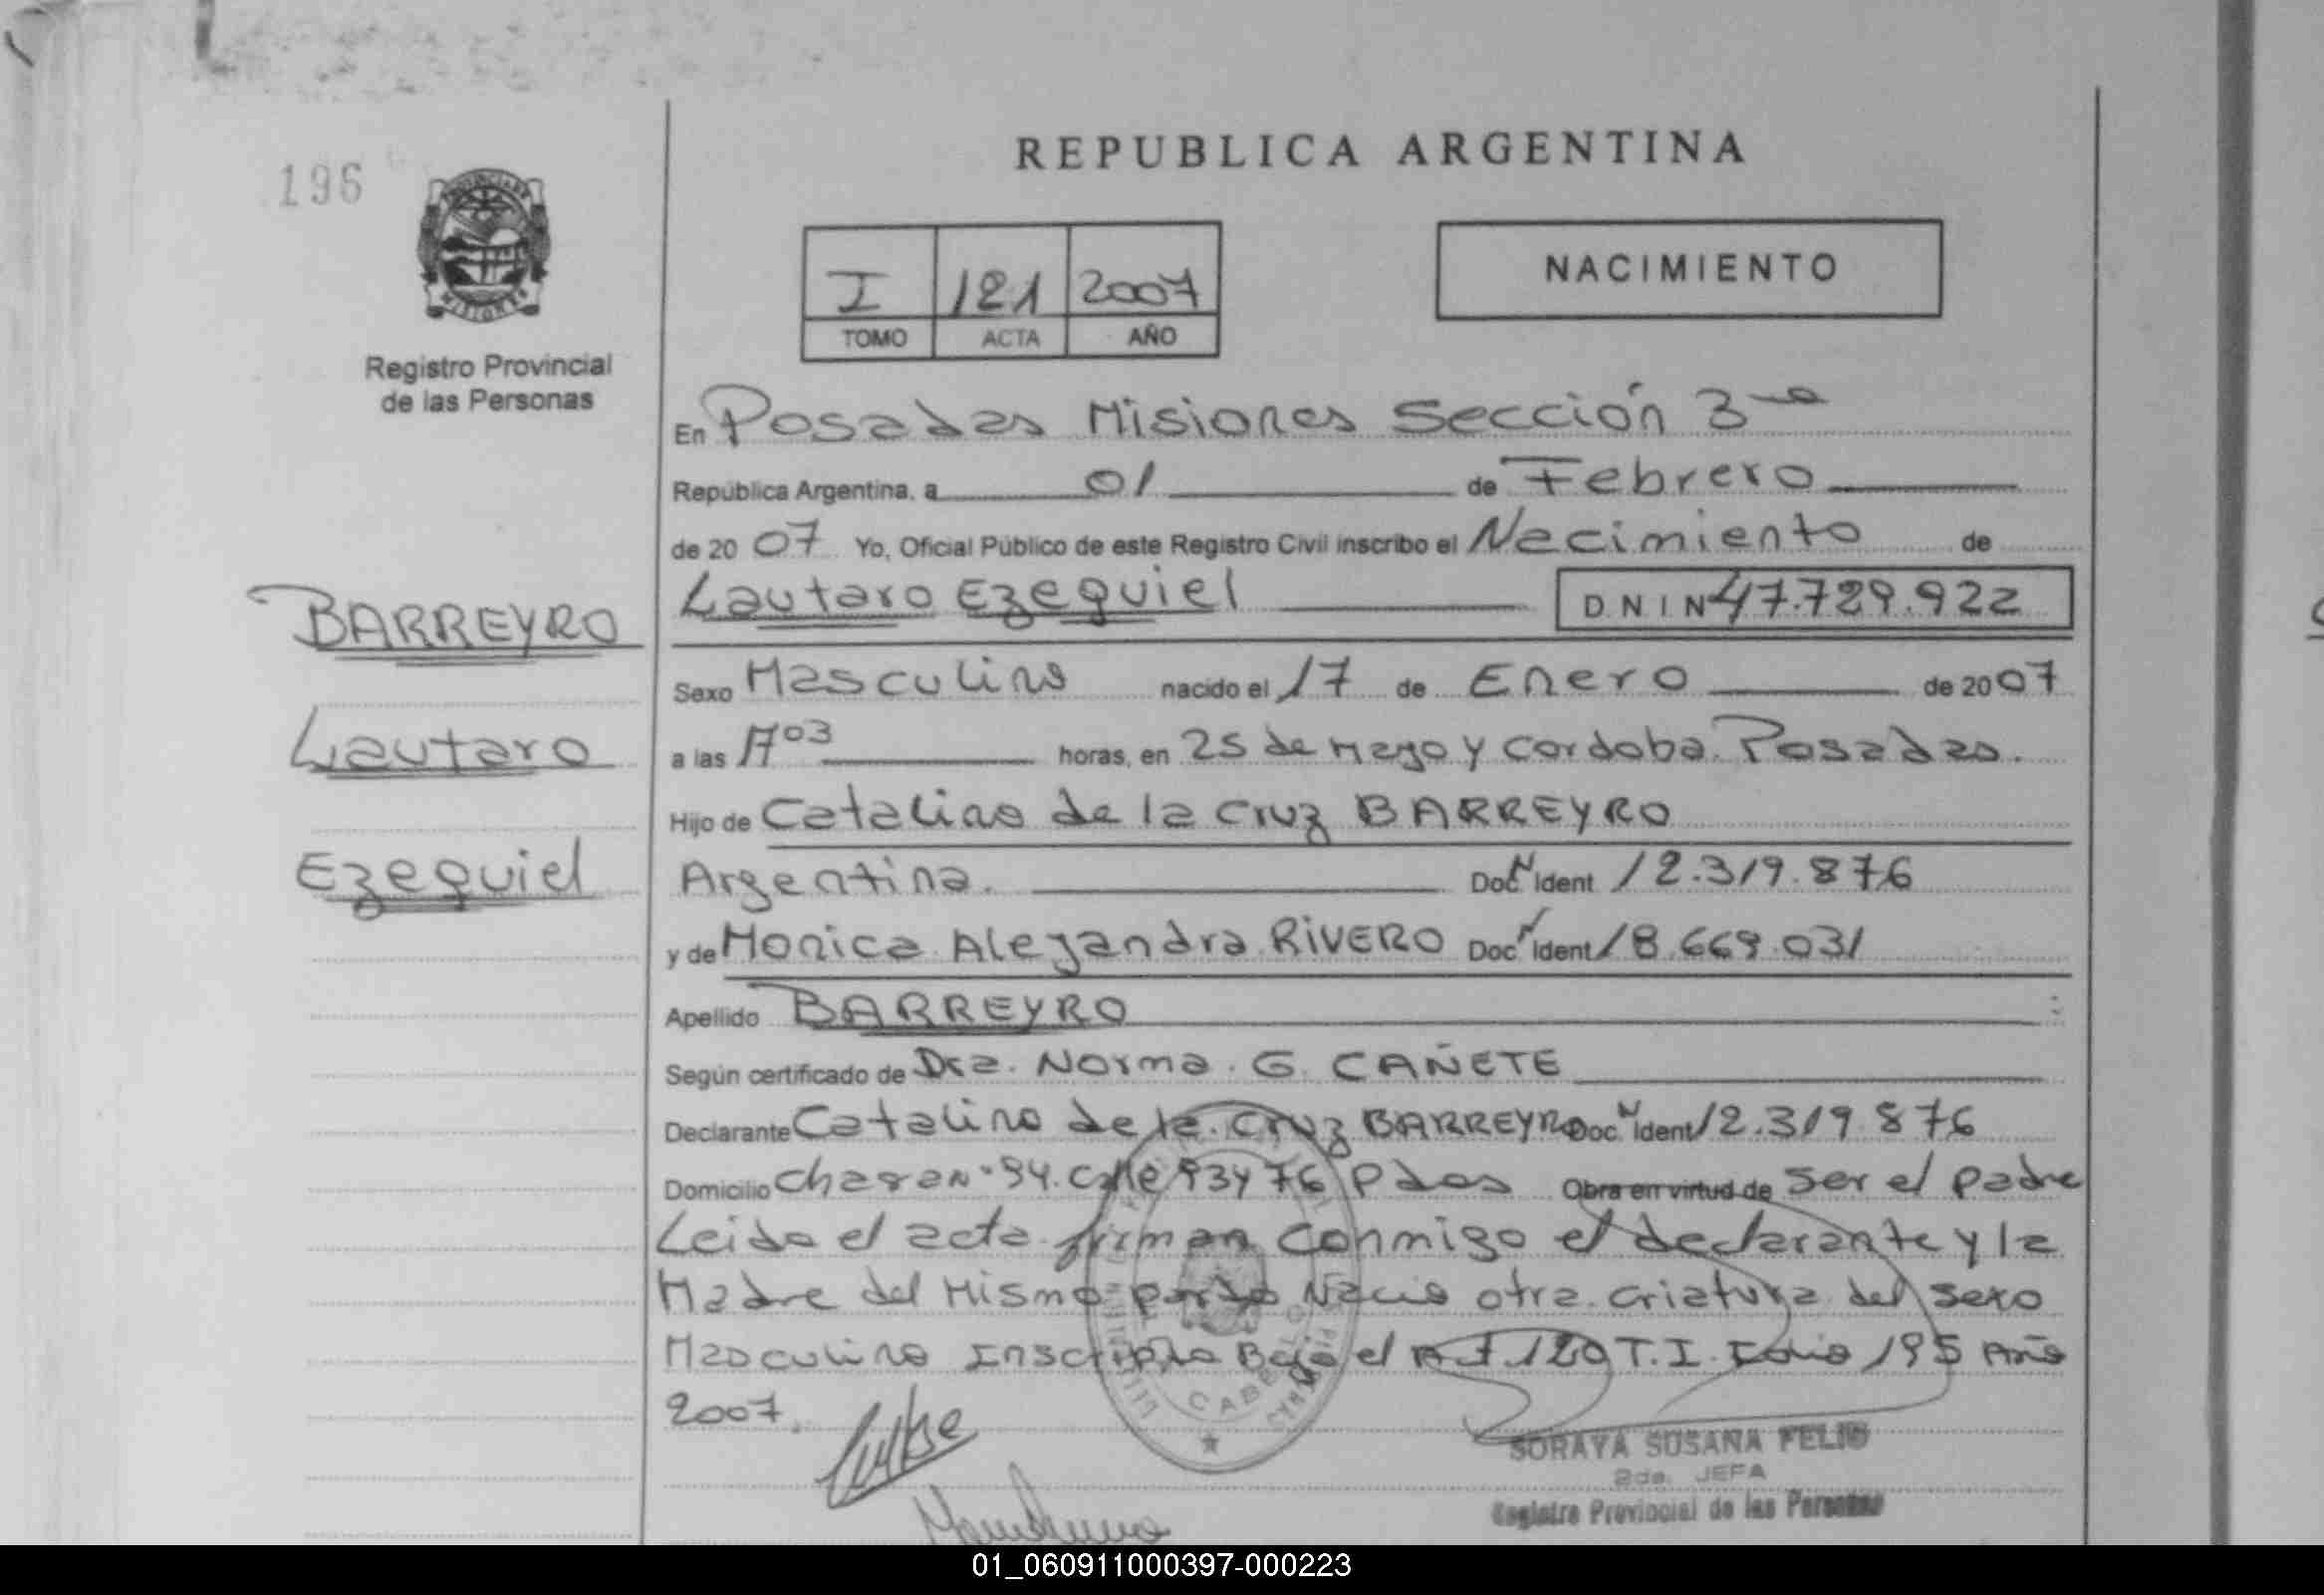 REPUBLICA ARGENTINA
196
PROVINCIA DE
MISIONES
Registro Provincial
de las Personas
I 121 2007
TOMO ACTA AÑO
NACIMIENTO
BARREYRO
Lautaro
Ezequiel
En Posadas Misiones Sección 3ra
República Argentina, a 01 de Febrero
de 20 07 Yo, Oficial Público de este Registro Civil inscribo el Nacimiento de
Lautaro Ezequiel DNI N 47.729.922
Sexo Masculino nacido el 17 de Enero de 20 07
a las 17 03 horas, en 25 de Mayo y Cordoba. Posadas.
Hijo de Catalino de la Cruz BARREYRO
Argentina. Doc N Ident 12.319.876
y de Monica Alejandra RIVERO Doc N Ident 18.669.031
Apellido BARREYRO
Según certificado de Dra. Norma. G. CAÑETE
Declarante Catalino de la Cruz BARREYRO Doc. N Ident 12.319.876
Domicilio Chacra Nº 94. Calle 93 y 76 Pdas Obra en virtud de Ser el padre
Leida el acta firman conmigo el declarante y la
Madre del Mismo parto Nacio otra criatura del sexo
Masculino Inscripto Bajo el 120 T.I. Folio 195 Año
2007.
SORAYA SUSANA FELIU
2da. JEFA
Registro Provincial de las Personas
01_060911000397-000223